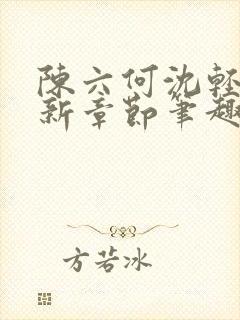 陳六何沈輕
新章節筆趣
方若冰